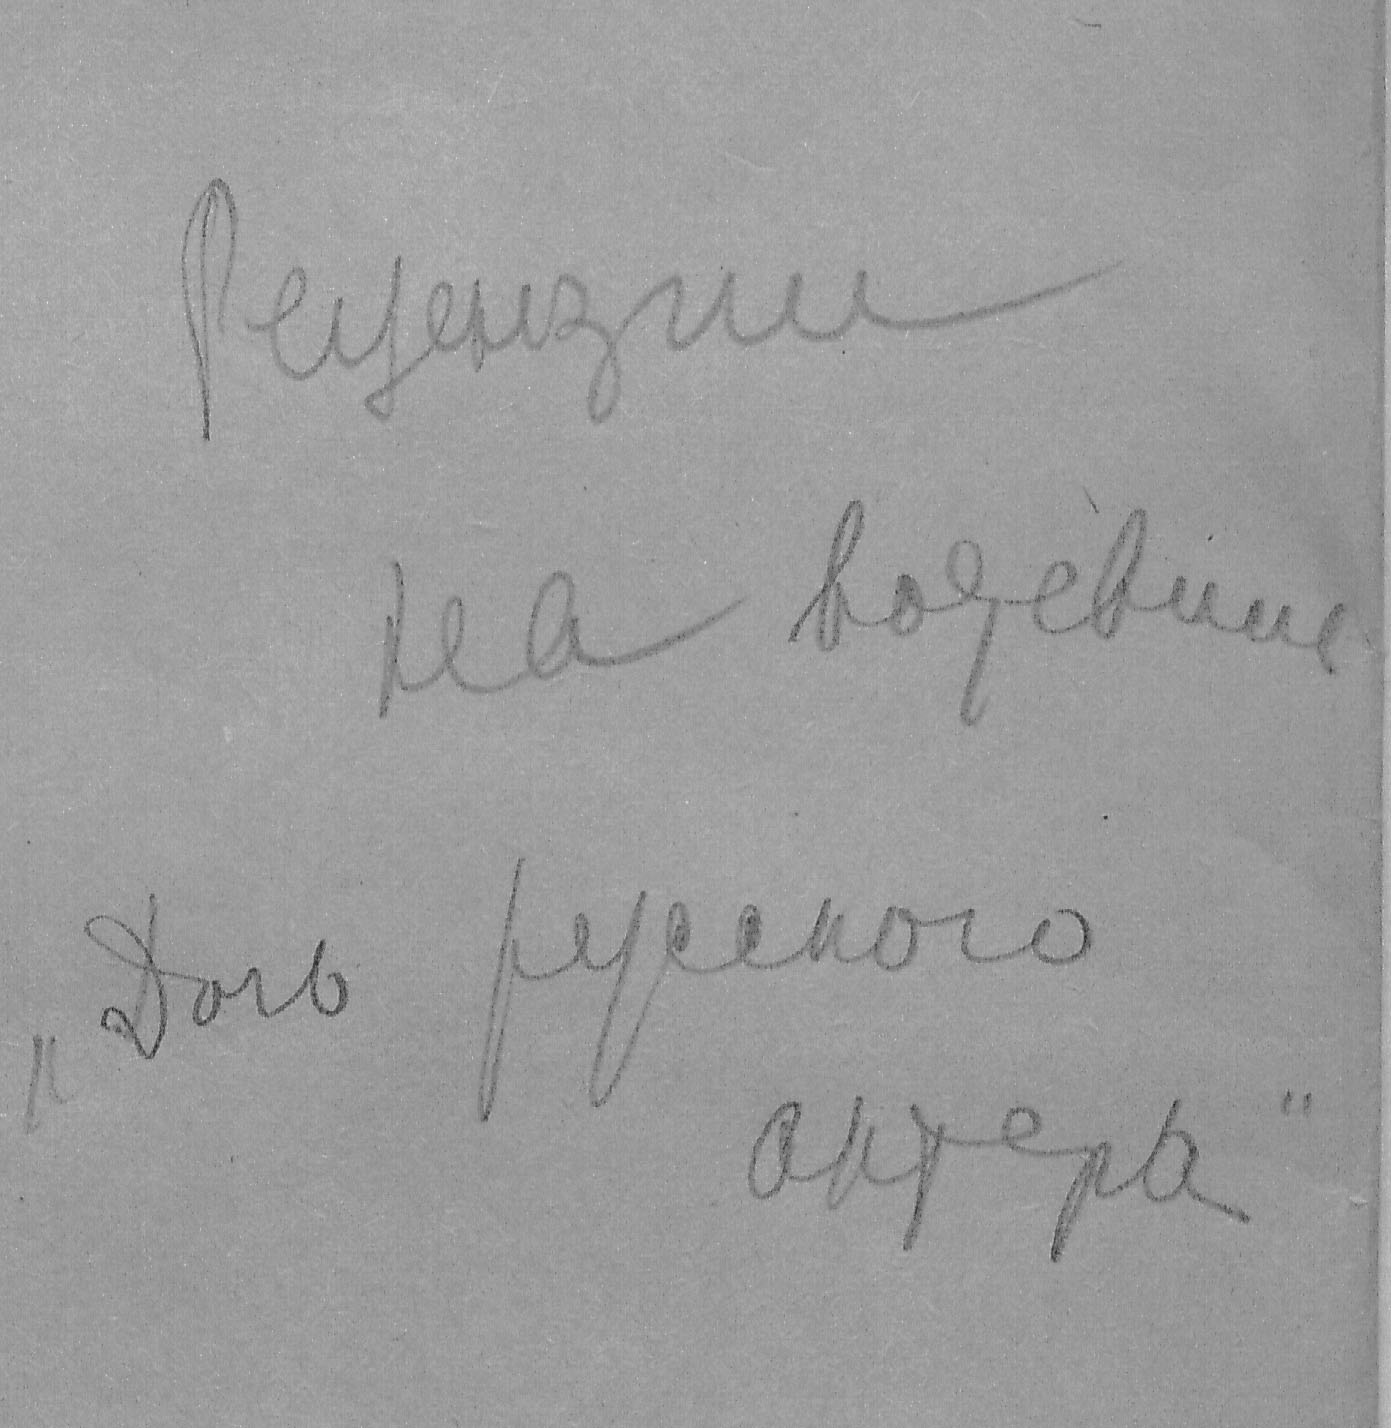 Рецензии
на водевиль
„Дочь русского
актера"